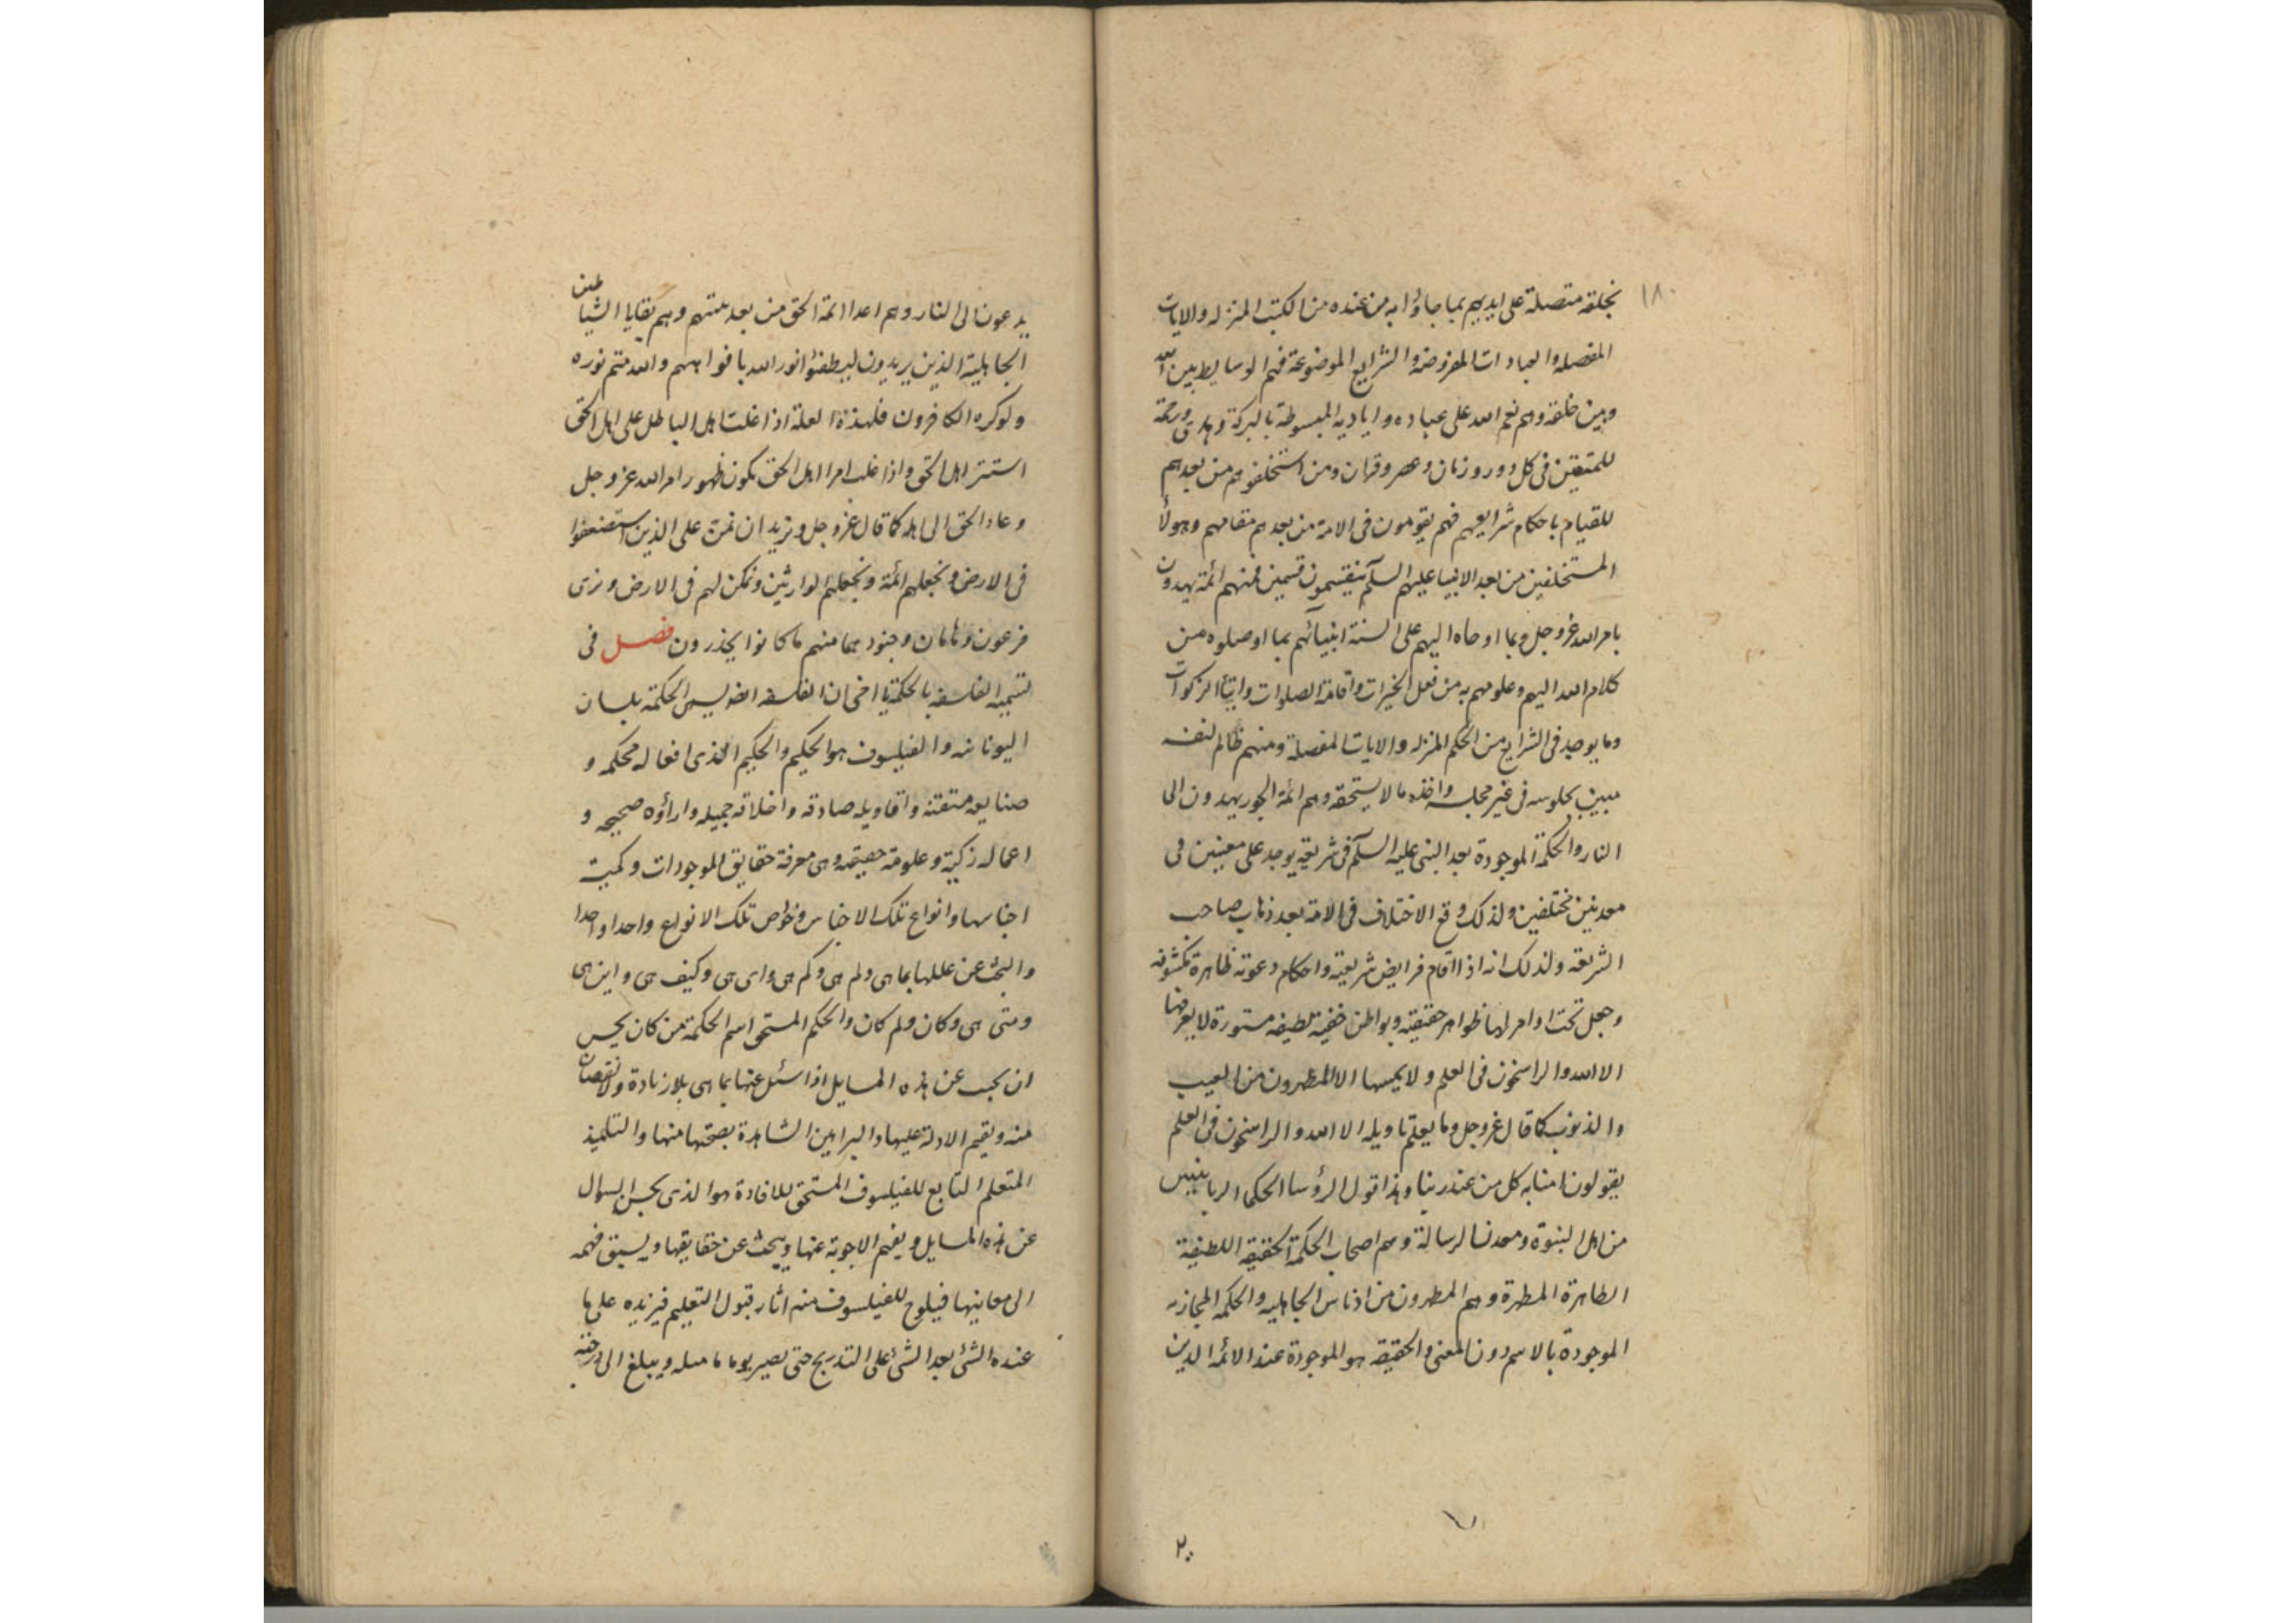 ١٨٠
بخلقه متصلة على ايديهم بما جاؤا به من عنده من الكتب المنزله والايات
المفصله والعبادات المفروضه والشرايع الموضوعة فهم الوسايط بين الله
وبين خلقه وهم نعم الله على عباده واياديه المبسوطة بالبركة وهدى ورحمة
للمتقين فى كل دور وزمان وعصر وقران ومن استخلفوهم من بعدهم
للقيام باحكام شرايعهم فهم يقومون فى الامة من بعدهم مقامهم وهولأ
المستخلفين من بعد الانبيا عليهم السلم ينقسمون قسمين فمنهم ائمة يهدون
بامر الله عز وجل وبما اوحاه اليهم على السنة انبيائهم بما اوصلوه من
كلام الله اليهم وعلومهم به من فعل الخيرات واقامة الصلوات وايتأ الزكوات
وما يوجد فى الشرايع من الحكم المنزله والايات المفصلة ومنهم ظالم لنفسه
مبين بجلوسه فى غير مجلسه واخذه ما لا يستحقه وهم ائمة الجور يهدون الى
النار والحكمة الموجودة بعد النبى عليه السلم فى شريعته يوجد على معنيين فى
معدنين مختلفين ولذلك وقع الاختلاف فى الامة بعد ذهاب صاحب
الشريعه ولذلك انه اذا اقام فرايض شريعته واحكام دعوته ظاهرة مكشوفه
وجعل تحت اوامر لها ظواهر حقيقته وبواطن خفية لطيفه مستورة لا يعرفها
الا الله والراسخون فى العلم ولا يمسها الا المطهرون من العيب
والذنوب كما قال عز وجل وما يعلم تاويله الا الله والراسخون فى العلم
يقولون امنا به كل من عند ربنا وهذا قول الرؤسا الحكما الربانيين
من اهل النبوة ومعدن الرسالة وهم اصحاب الحكمة الحقيقه اللطيفية
الطاهرة المطهرة وهم المطهرون من ادناس الجاهليه والحكمه المجازيه
الموجودة بالاسم دون المعنى والحقيقه هو الموجودة عند الائمه الذين
يدعون الى النار وهم اعدا ائمة الحق من بعد ميتهم وهم بقايا الشياطين
الجاهلية الذين يريدون ليطفئوا نور الله بافواههم والله متم نوره
ولو كره الكافرون فلهذه العلة اذا غلبت اهل الباطل على اهل الحق
استتر اهل الحق واذا غلب امر اهل الحق يكون ظهور امر الله عز وجل
وعاد الحق الى اهله كما قال عز وجل ونريد ان نمن على الذين استضعفوا
فى الارض ونجعلهم ائمة ونجعلهم الوارثين ونمكن لهم فى الارض ونرى
فرعون وهامان وجنودهما منهم ما كانوا يحذرون فصل فى
تسميه الفلسفه بالحكمة يا اخى ان الفلسفه الحكمة بلسان
اليونانيه والفيلسوف هو الحكيم والحكيم الذى افعاله محكمه و
صنايعه متقنه واقاويله صادقه واخلاقه جميله واراؤه صحيحه و
اعماله زكية وعلومه حقيقه وهى معرفة حقايق الموجودات وكمية
اجناسها وانواع تلك الاجناس وخواص تلك الانواع واحدا واحدا
والبحث عن عللها بما هى ولم هى وكم هى واى هى وكيف هى واين هى
ومتى هى وكان ولم كان والحكم المستحق اسم الحكمة من كان يحسن
ان يجب عن هذه المسايل اذا سئل عنها بما هى بلا زيادة ولا نقصان
منه ويقيم الادلة عليها والبراهين الشاهدة بصحتها منها والتلميذ
المتعلم التابع للفيلسوف المستحق للافادة هو الذى يحسن السوال
عن هذه المسايل ويفهم الاجوبة عنها ويبحث عن حقايقها ويسبق فهمه
الى معانيها فيلوح للفيلسوف منه اثار قبول التعليم فيزيده على ما
عنده الشئ بعد الشئ على التدريج حتى يصير يوما ما مثله ويبلغ الى درجته